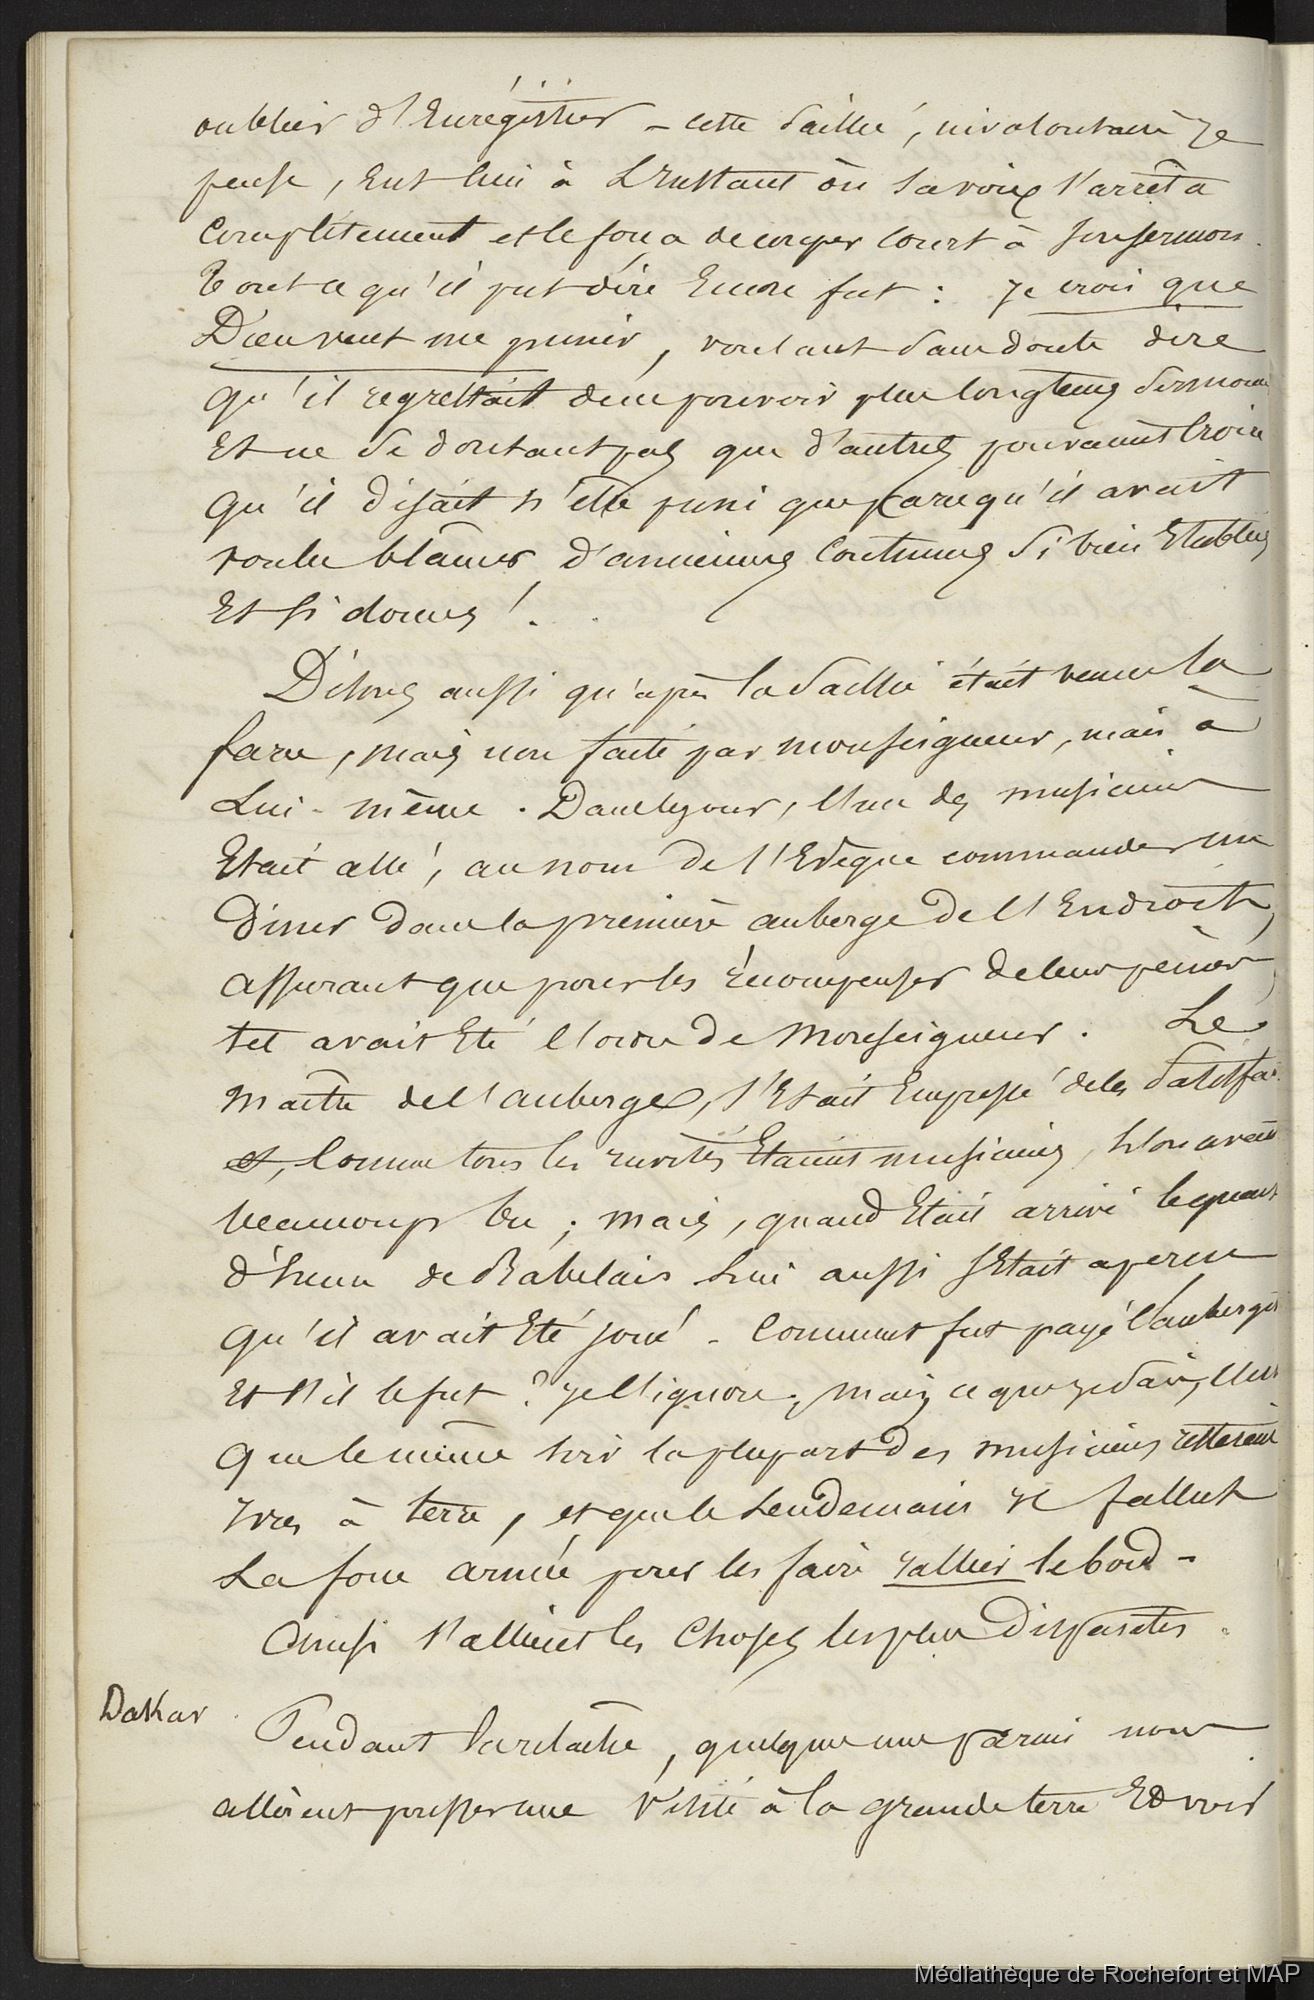 oublier d'Enrégistrer – cette saillie, involontaire je
pense, Eut lieu à L'instant où sa voix s'arrêta
complètement et le força de couper court à son sermon.
Tout ce qu'il put dire Encore fut : je crois que
Dieu veut me punir, voulant sans doute dire
qu'il regrettait de ne pouvoir plus longtems sermoner
Et ne se doutant pas que d'autres pouvaient croire
qu'il disait n'être puni que parcequ'il avait
voulu blâmer d'anciennes Coutumes si bien Etablies
Et si douces !.
Disons aussi qu'après la saillie était venue la
farce, mais non faite par monseigneur, mais à
Lui-même. Dans le jour, l'un des musiciens
Etait allé, au nom de l'Evêque commander un
Diner dans la première auberge de l'Endroit,
assurant que pour les récompenser de leurs peines,
tel avait Eté l'ordre de Monseigneur. Le
maître de l'auberge, s'Etait Empressé de les satisfaire
et, Comme tous les invités Etaient musiciens, ils avaient
beaucoup bu ; mais, quand Etait arrivé le quart
d'heure de Rabelais Lui aussi s'Etait aperçu
qu'il avait Eté joué – Comment fut payé l'aubergiste
Et s'il le fut ? je l'ignore ; mais ce que je sais, c'est
que le même soir la plupart des musiciens restèrent
ivres à terre, et que le Lendemain il fallut
La force armée pour les faire rallier le bord –
Ainsi s'allient les Choses les plus Disparates.
Dakar
Pendant la relâche, quelques uns parmi nous
allèrent pousser une visite à la grande terre Et voir